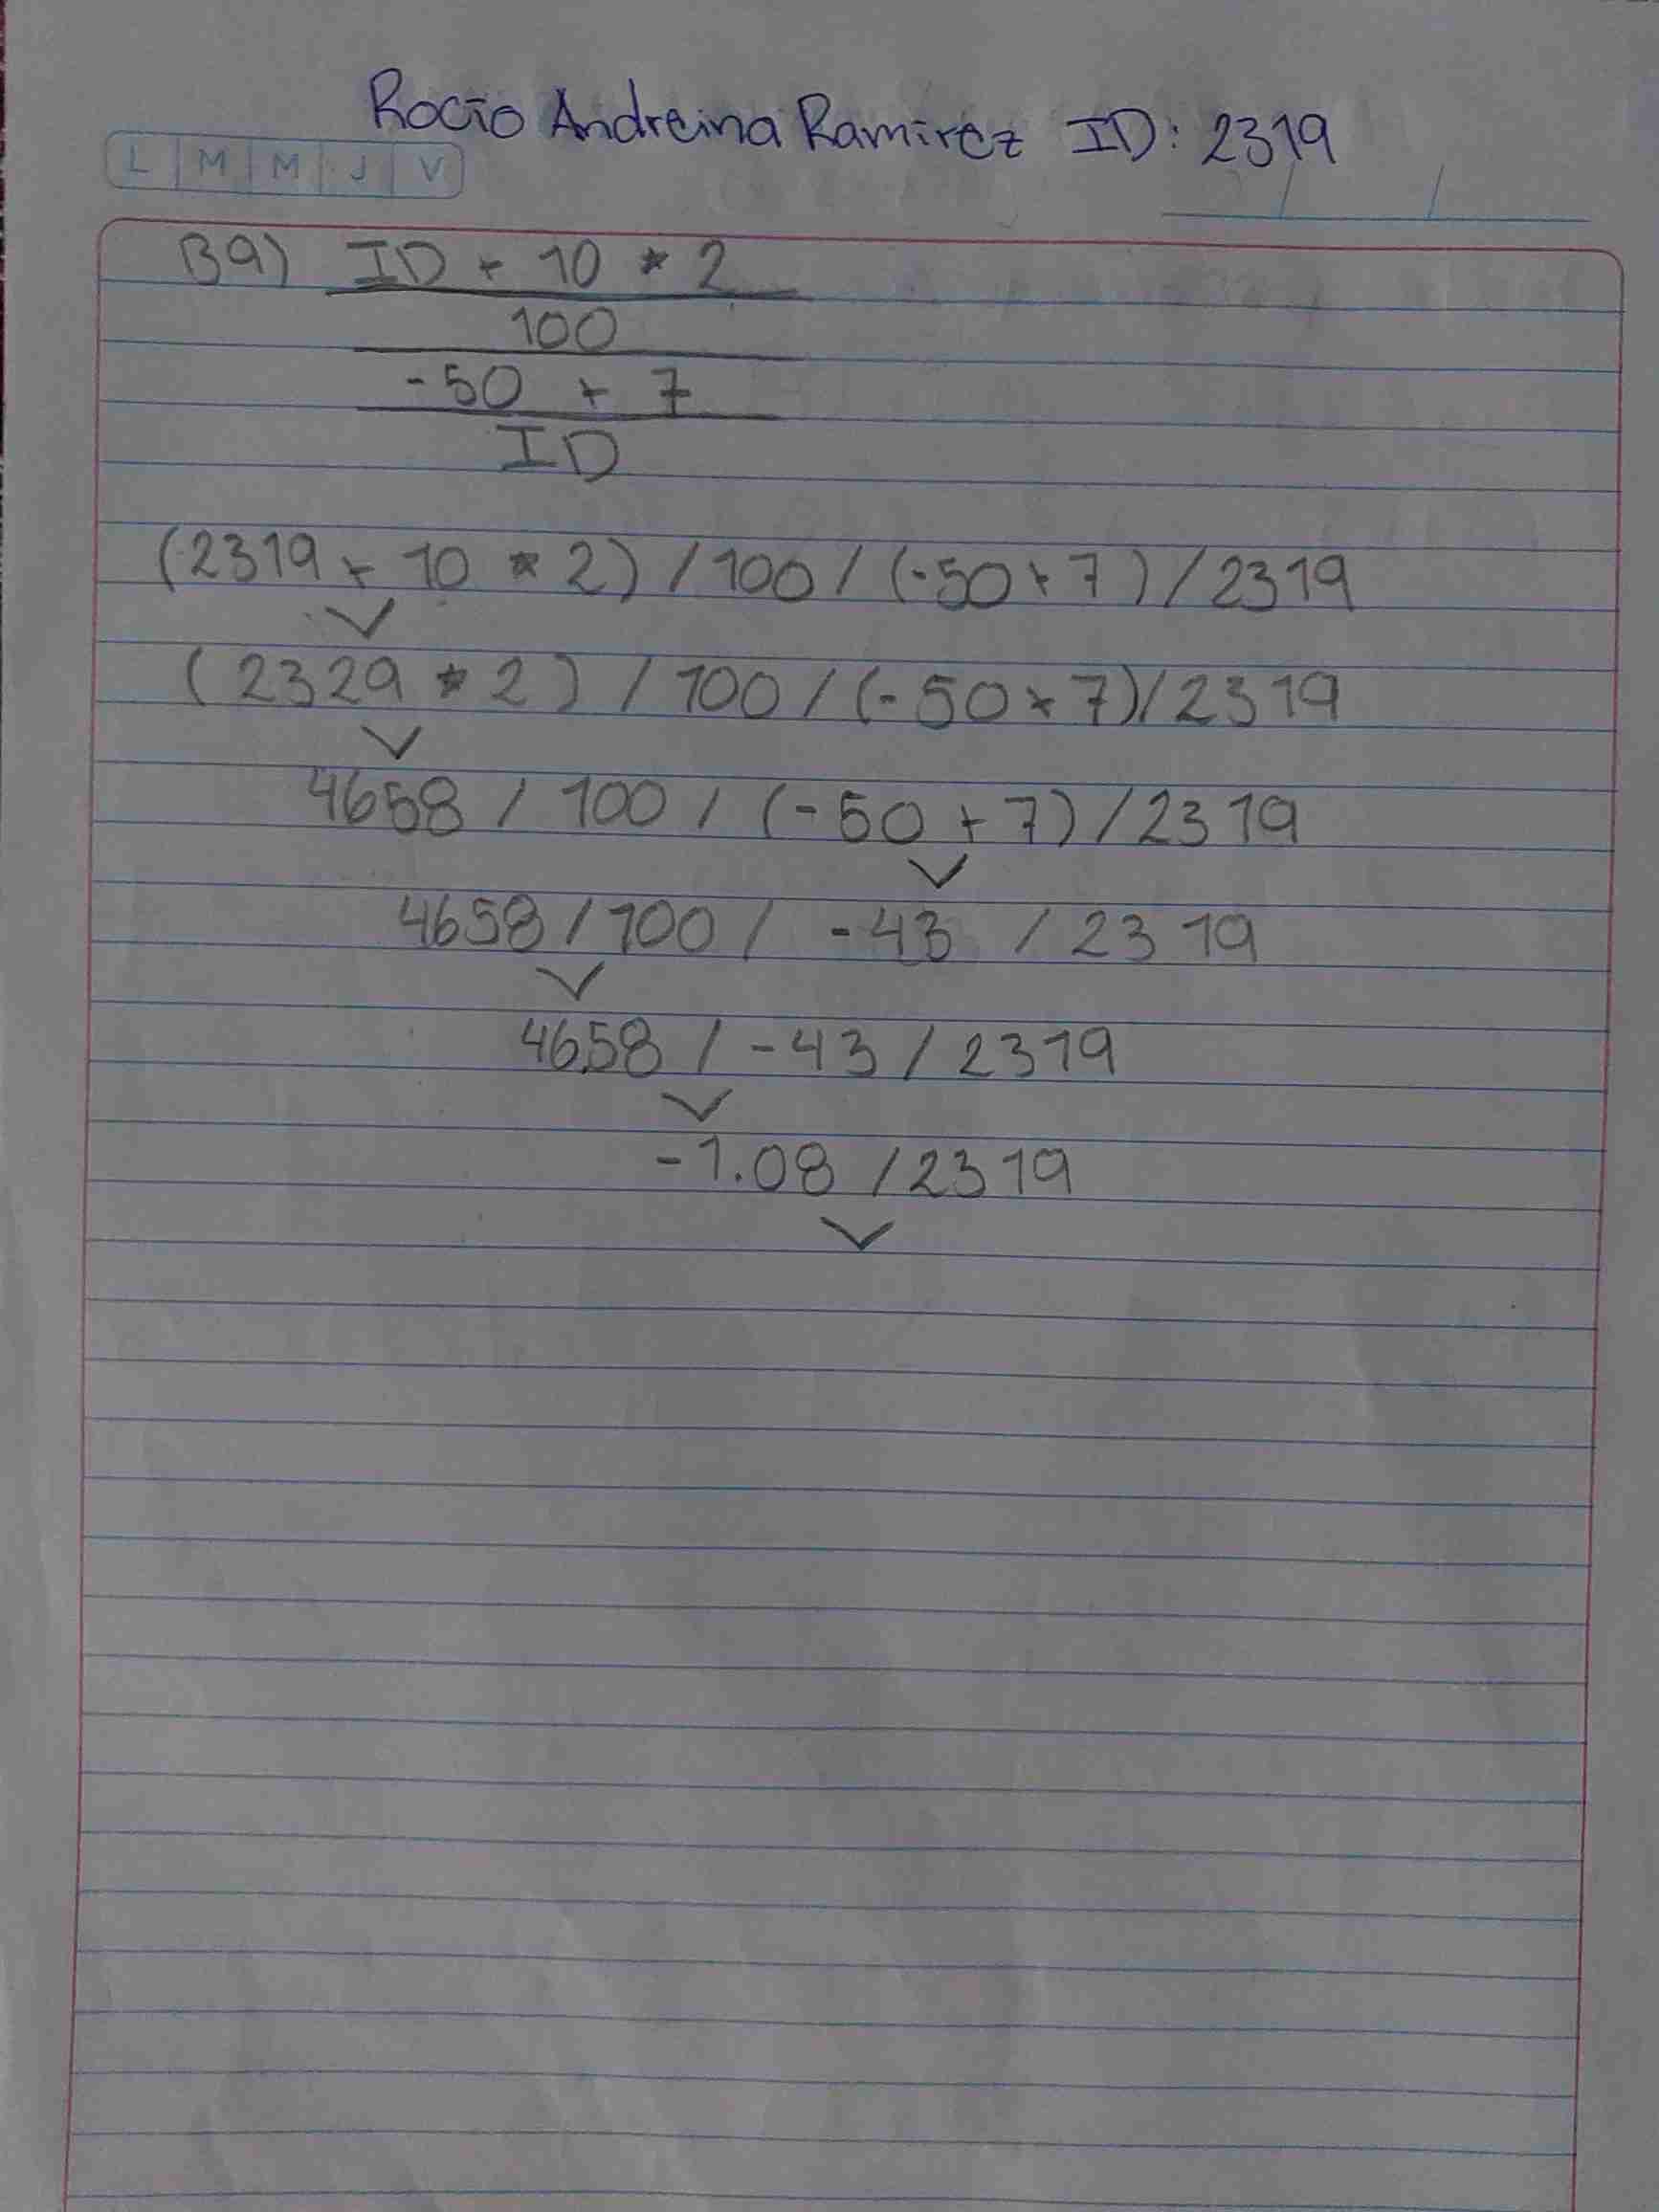 Rocío Andreina Ramirez ID: 2319
L M M J V
39) ID + 10 * 2
100
-50 + 7
ID
(2319 + 10 * 2) / 100 / (-50 + 7) / 2319
(2329 * 2) / 100 / (-50 + 7) / 2319
4658 / 100 / (-50 + 7) / 2319
4658 / 100 / -43 / 2319
46.58 / -43 / 2319
-1.08 / 2319